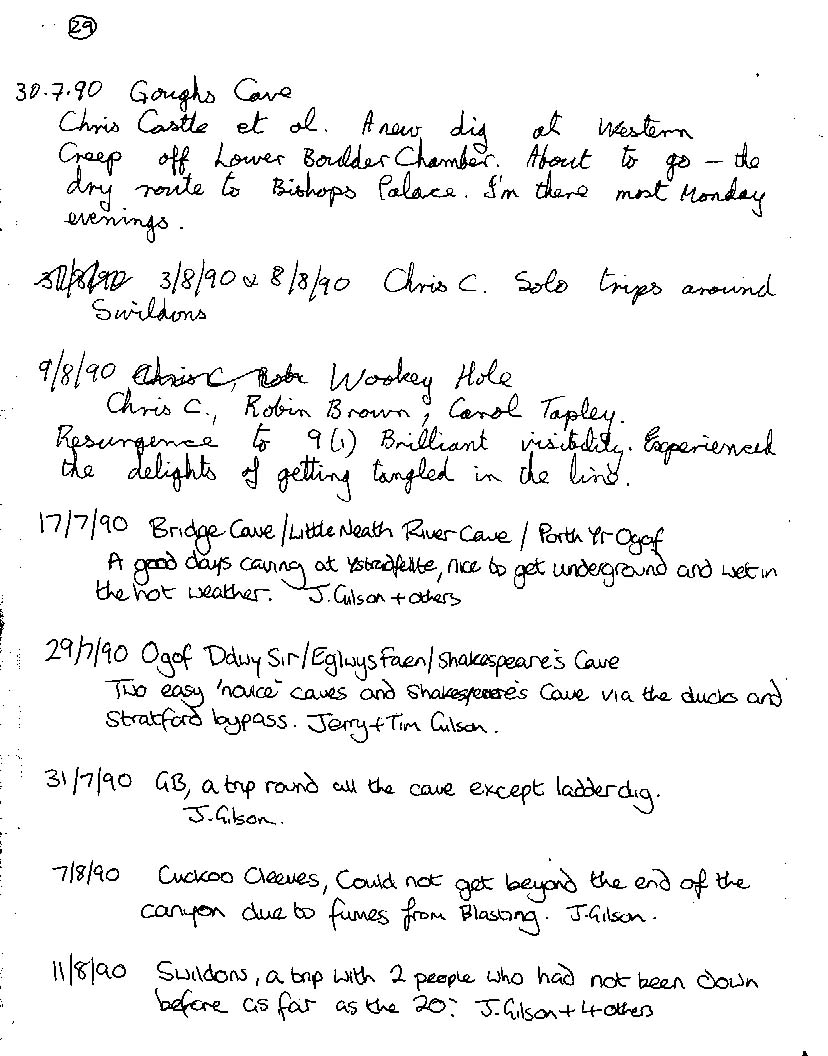 29
30.7.90 Goughs Cave
Chris Castle et al. A new dig at Western
Creep off Lower Boulder Chamber. About to go – the
dry route to Bishops Palace. I'm there most Monday
evenings.
3/8/90 & 8/8/90 Chris C. Solo trips around
Swildons
9/8/90 Chris C, Robi Wookey Hole
Chris C., Robin Brown, Carol Tapley.
Resurgence to 9(1) Brilliant visibility. Experienced
the delights of getting tangled in the line.
17/7/90 Bridge Cave/Little Neath River Cave / Porth Yr Ogof
A good days caving at Ystradfellte, nice to get underground and wet in
the hot weather. J.Gilson + others
29/7/90 Ogof Ddwy Sir/Eglwys Faen/Shakespeare's Cave
Two easy 'novice' caves and Shakespeare's Cave via the ducks and
Stratford bypass. Jerry + Tim Gilson.
31/7/90 GB, a trip round all the cave except ladder dig.
J.Gilson.
7/8/90 Cuckoo Cleeves, Could not get beyond the end of the
canyon due to fumes from Blasting. J.Gilson.
11/8/90 Swildons, a trip with 2 people who had not been down
before as far as the 20'. J.Gilson + 4 others